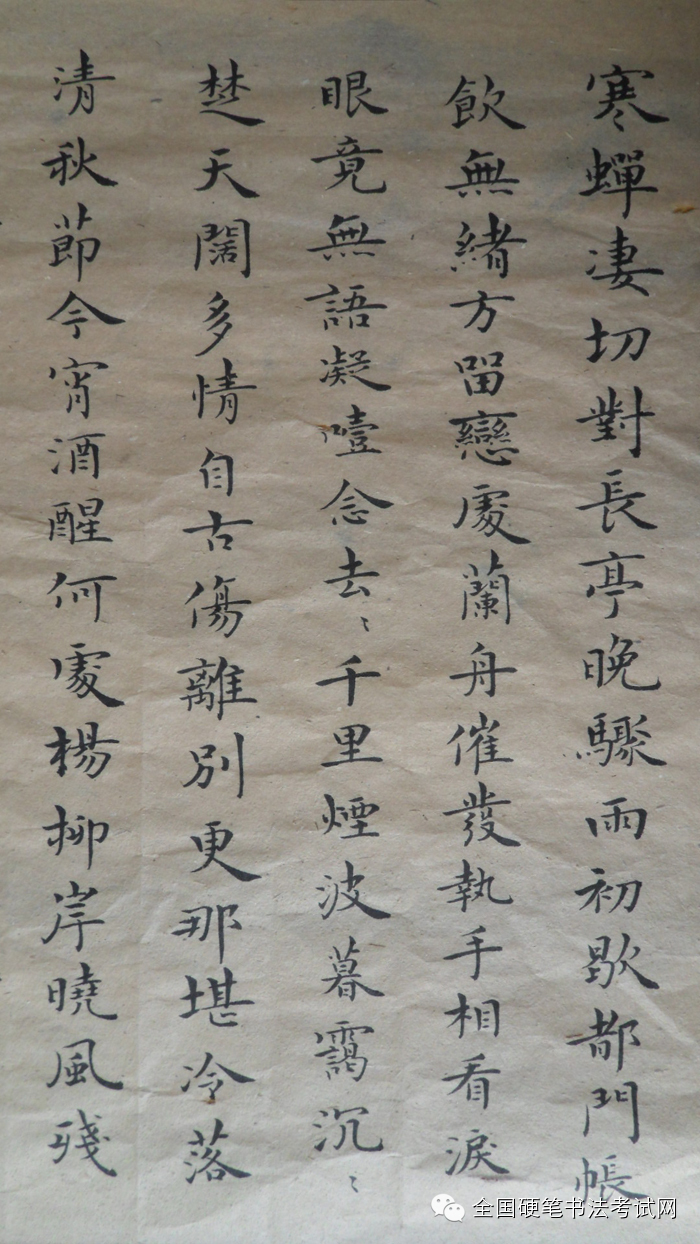 寒蟬淒切對長亭晚驟雨初歇都門帳
飲無緒方留戀處蘭舟催發執手相看淚
眼竟無語凝噎念去〻千里煙波暮靄沉〻
楚天闊多情自古傷離別更那堪冷落
清秋節今宵酒醒何處楊柳岸曉風殘
全国硬笔书法考试网